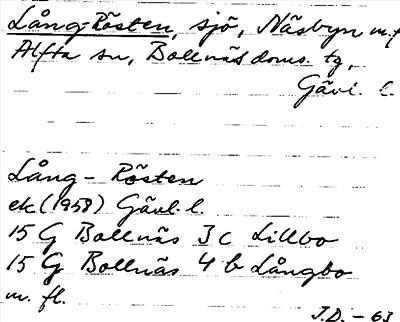 Lång-Rösten, sjö, Näsbyn m.fl
Alfta sn, Bollnäs doms. tg,
Gävl. l.
Lång-Rösten
ek (1958) Gävl. l.
15 G Bollnäs 3 c Lillbo
15 G Bollnäs 4 b Långbo
m. fl.
J.D. - 63